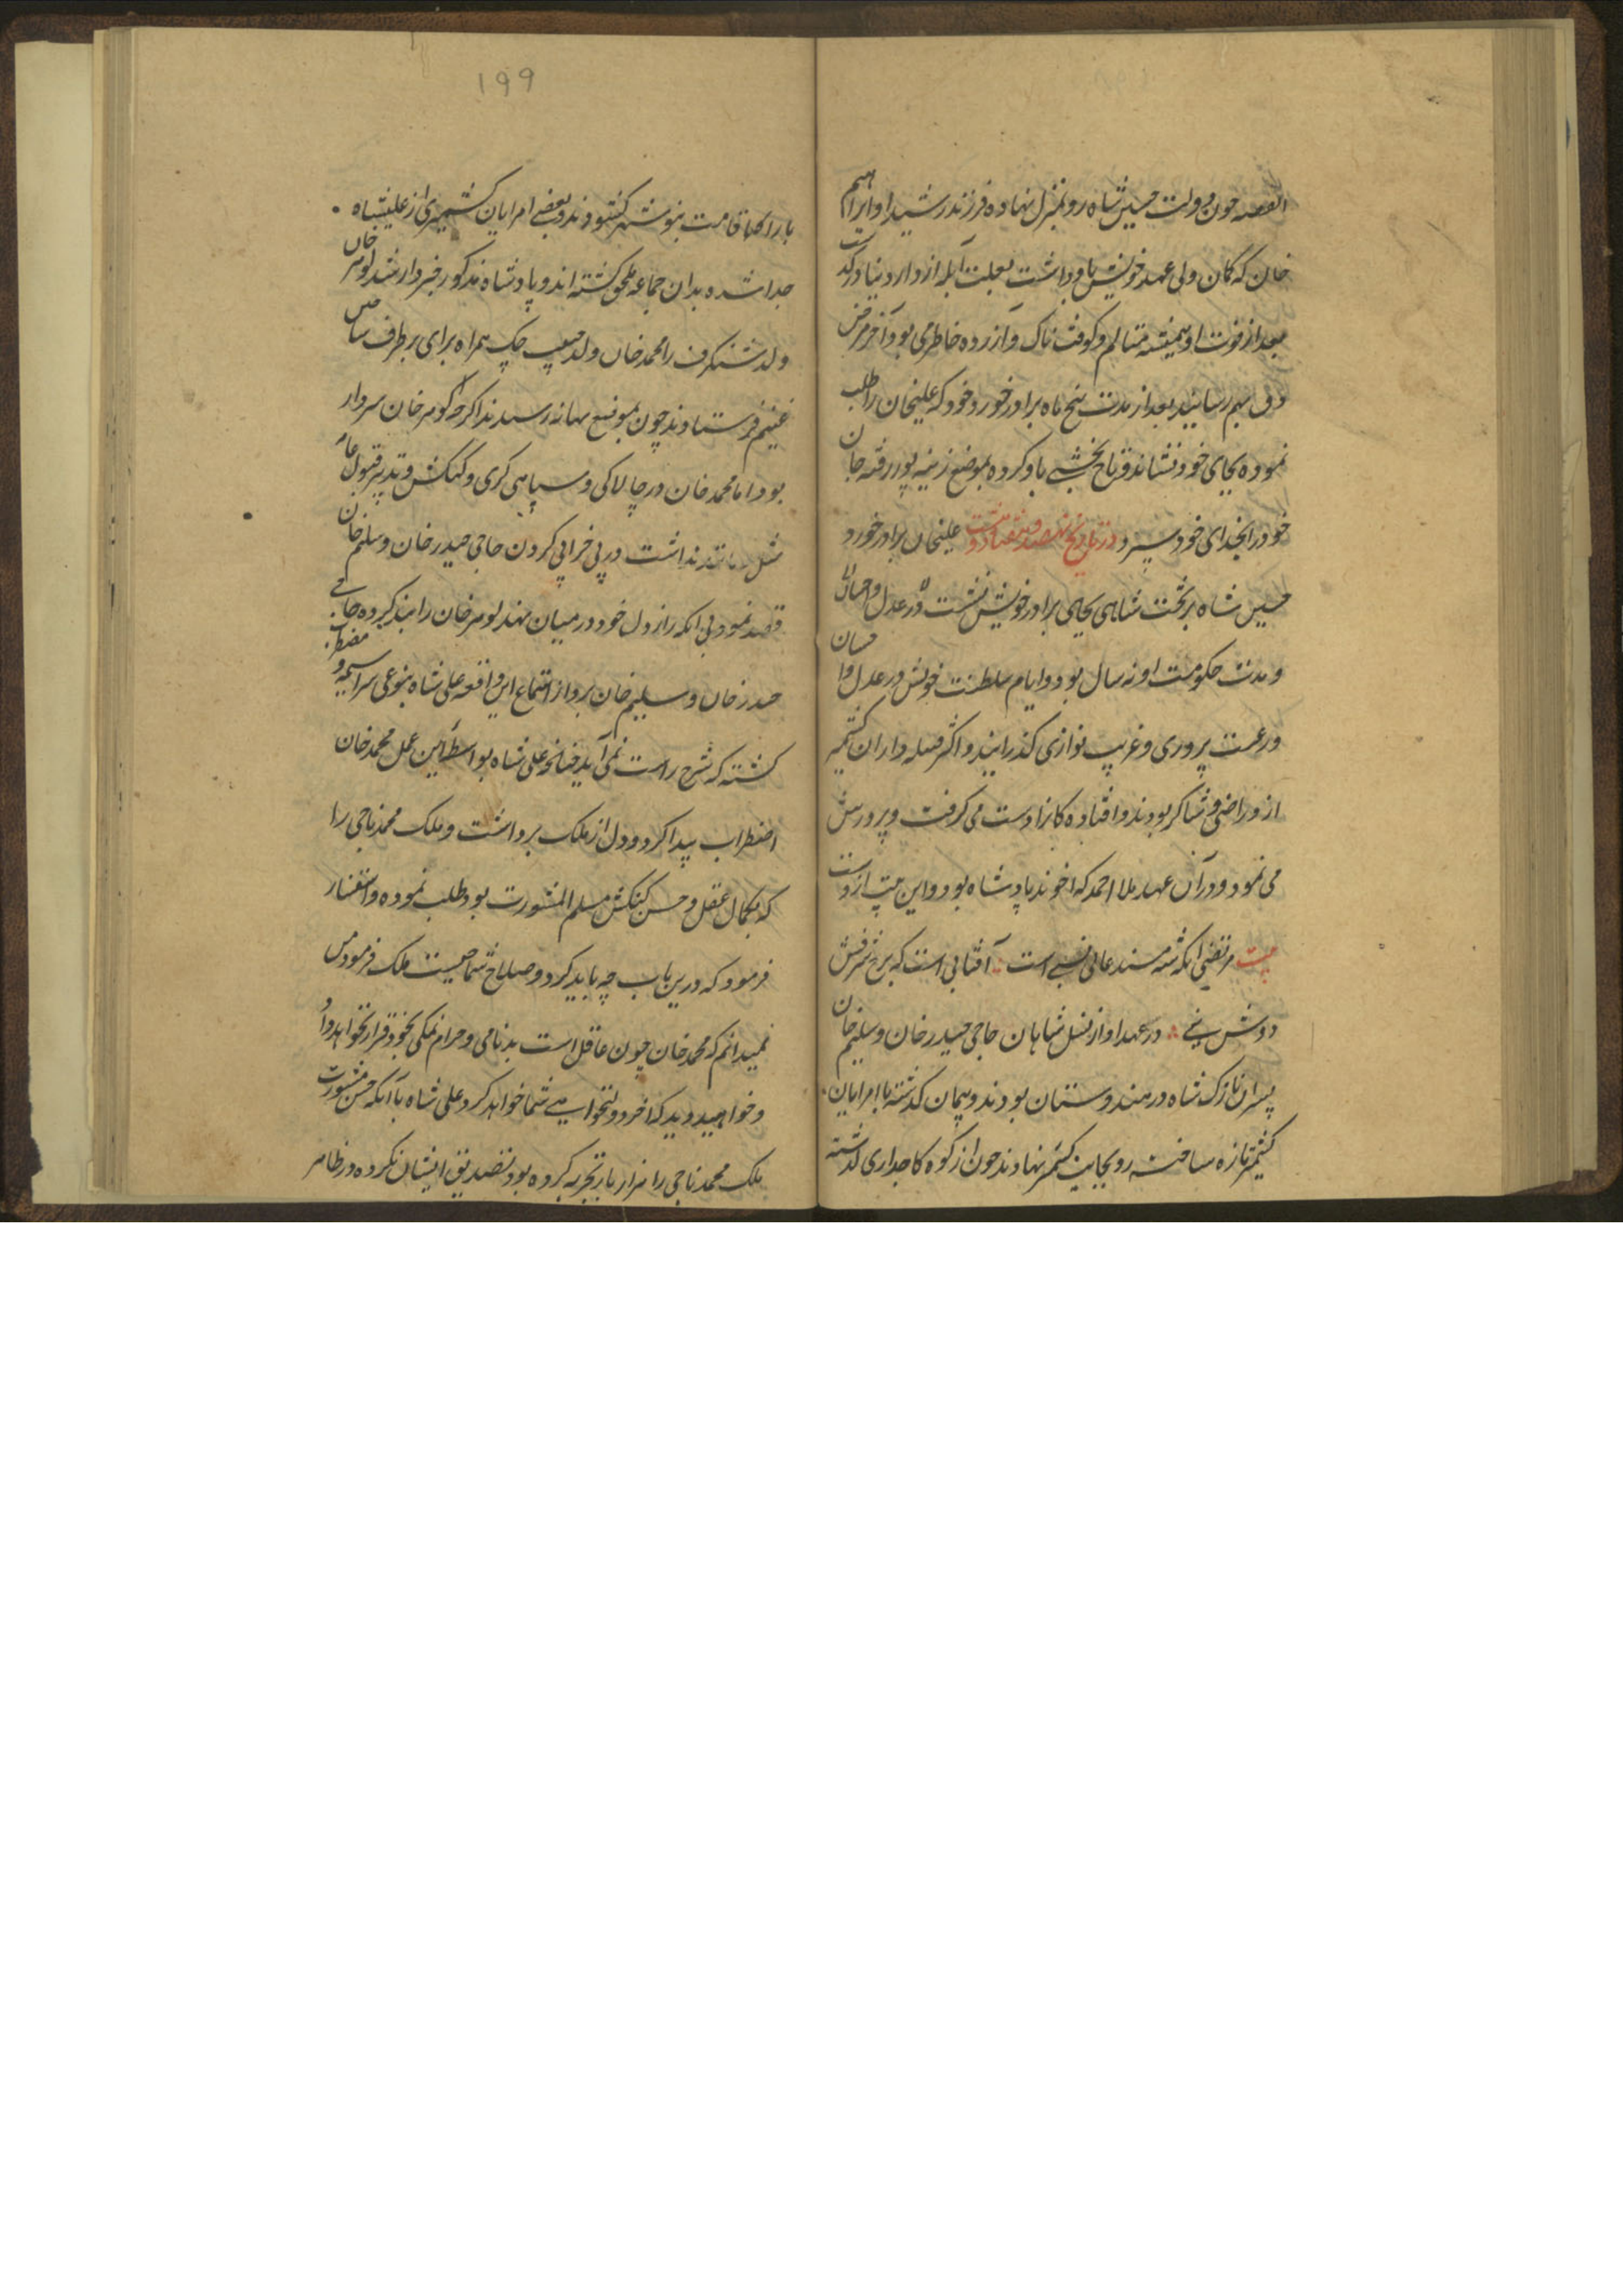 القصه چون دولت حسین شاه رو بتنزل نهاده فرزند رشید او ابراهیم
خان که کان ولی عهد خویش باو داشت بعلت آبله از دار دنیا در گذشت
بعد از فوت او همیشه متالم و کوفت ناک و آزرده خاطر می بود آخر مرض
دق بهم رسانید بعد از مدت پنج ماه برادر خورد خود که علیخان را طلب
نموده بجای خود نشاند و تاج بخشی باو کرده بموضع زینه پور رفته جان
خود را بخدای خود سپرد در تاریخ نهصد و هفتاد و هشت علیخان برادر خورد
حسین شاه بر تخت شاهی بجای برادر خویش نشست در عدل و احسان
و مدت حکومت او نه سال بود و ایام سلطنت خویش در عدل و احسان
و رعیت پروری و غریب نوازی گذرانید و اکثر قبیله داران کشمیر
ازو راضی و شاکر بودند و افتاده کانرا دست می گرفت و پرورش
می نمود و در آن عهد ملا احمد که اخوند پادشاه بود و این بیت ازوست
بیت مرتضی آنکه شه مسند عالی نسبی است آفتابی است که برج شرفش
دوش نبی در عهد او از نسل شاهان حاجی حیدر خان و سلیم خان
پسران نازک شاه در هندوستان بودند و پیمان گذشته با امرایان
کشمیر تازه ساخته رو بجانب کشمیر نهادند چون از کوه کاجداری گذشته
۱۹۹
بار اقامت بنوشهر کشودند و بعضی امرایان کشمیری از علیشاه
جدا شده بدان جماعه ملحق گشته اند و پادشاه مذکور خبردار شد لوهر خان
ولد شنکرف را محمد خان ولد حبیب چک همراه برای بر طرف ساختن
غنیم فرستادند چون بموضع رسیدند اگرچه لوهر خان سردار
بود اما محمد خان در چالاکی و سپاهی گری و کنکش و تدبیر قبول عام
مثل مانند نداشت در پی خرابی کردن حاجی حیدر خان و سلیم خان
قصد نمود بی آنکه راز دل خود در میان نهد لوهر خان را بند کرده حاجی
حیدر خان و سلیم خان برد از استماع این واقعه علی شاه بنوعی سراسیمه و مضطرب
گشته که شرح راست نمی آید چنانچه علی شاه بواسطه این عمل محمد خان
اضطراب پیدا کرد و دل از ملک برداشت و ملک محمد ناجی را
که بکمال عقل و حسن کنکش مسلم المشورت بود طلب نموده و استفسار
فرمود که درین باب چه باید کرد و صلاح شما چیست ملک فرمود من
نمیدانم که محمد خان چون عاقل است بدنامی و حرام نمکی بخود قرار نخواهد داد
و خواهید دید که آخر دولتخواهی شما خواهد کرد علی شاه با آنکه حسن مشورت
ملک محمد ناجی را هزار بار تجربه کرده بود تصدیق ایشان نکرده در ظاهر